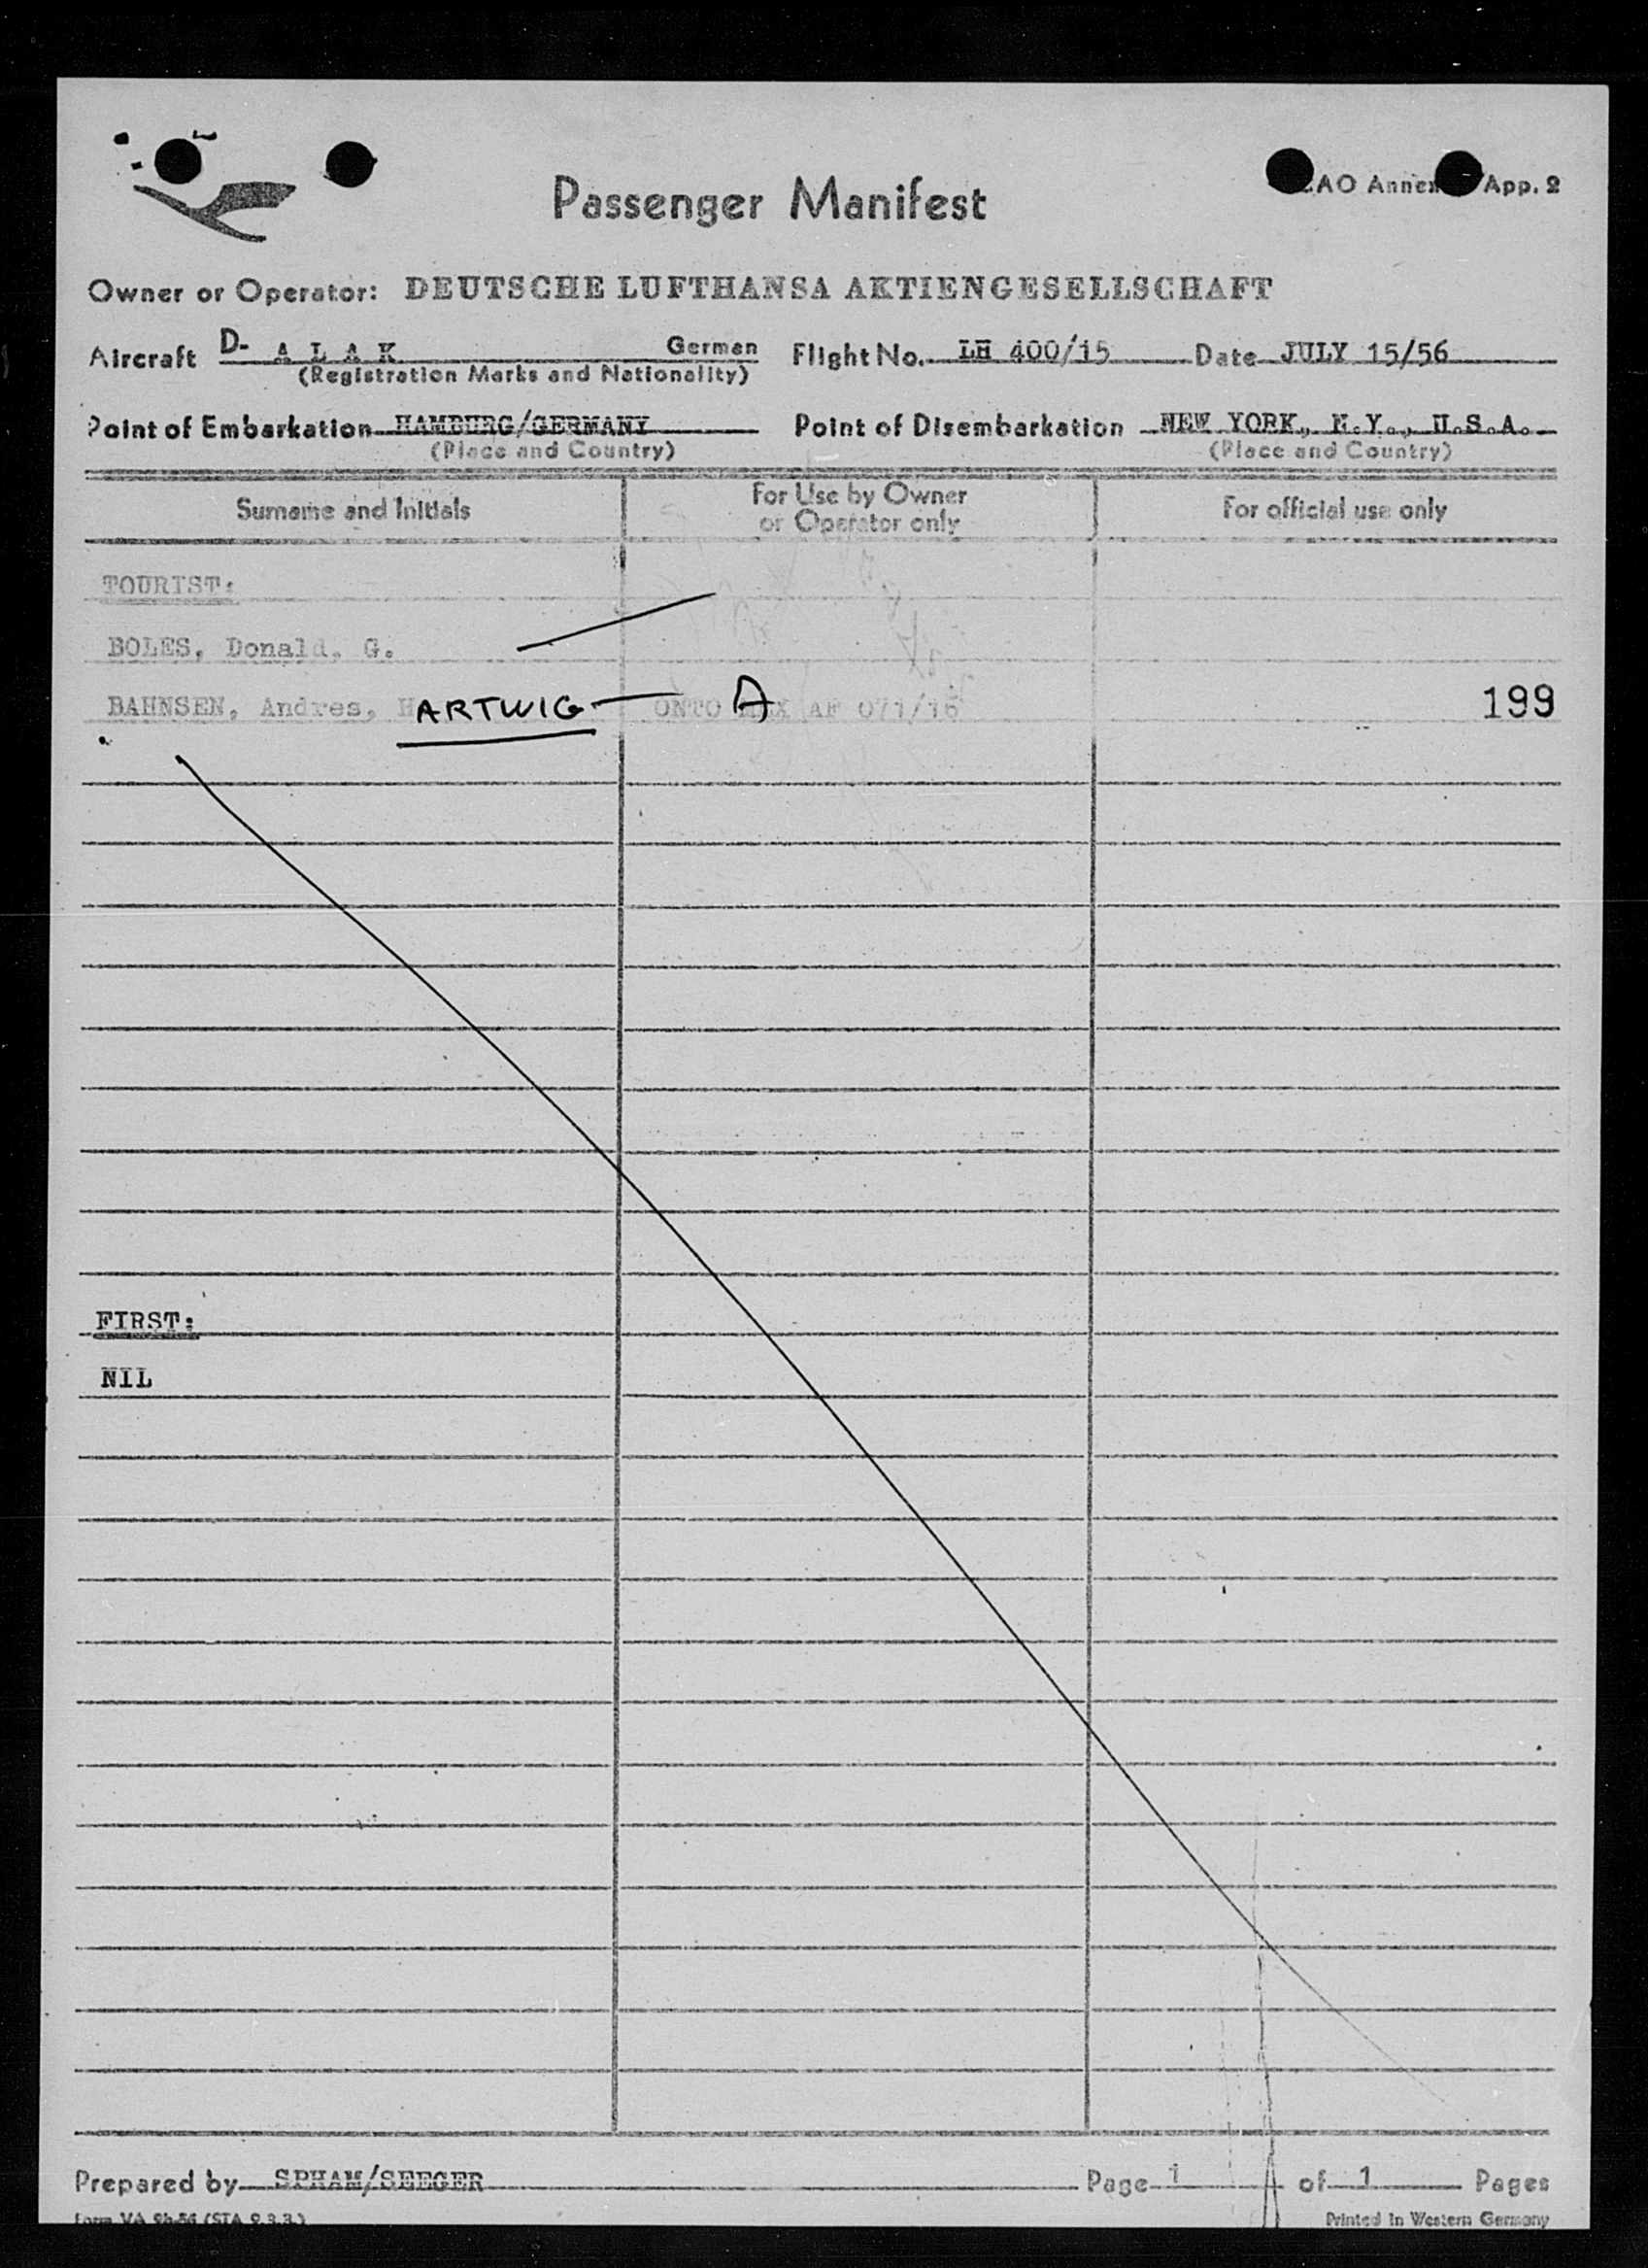 Passenger Manifest
AO Annex App. 2
Owner or Operator: DEUTSCHE LUFTHANSA AKTIENGESELLSCHAFT
Aircraft D- A L A K German Flight No. LH 400/15 Date JULY 15/56
(Registration Marks and Nationality)
Point of Embarkation HAMBURG/GERMANY Point of Disembarkation NEW YORK, N.Y., U.S.A.
(Place and Country) (Place and Country)
Surname and Initials For Use by Owner or Operator only For official use only
TOURIST:
BOLES, Donald. G.
BAHNSEN, Andres, HARTWIG ONTO AF 071/16 A 199
FIRST:
NIL
Prepared by SPHAM/SEEGER Page 1 of 1 Pages
Form VA 9b-56 (STA 9.3.3.) Printed in Western Germany